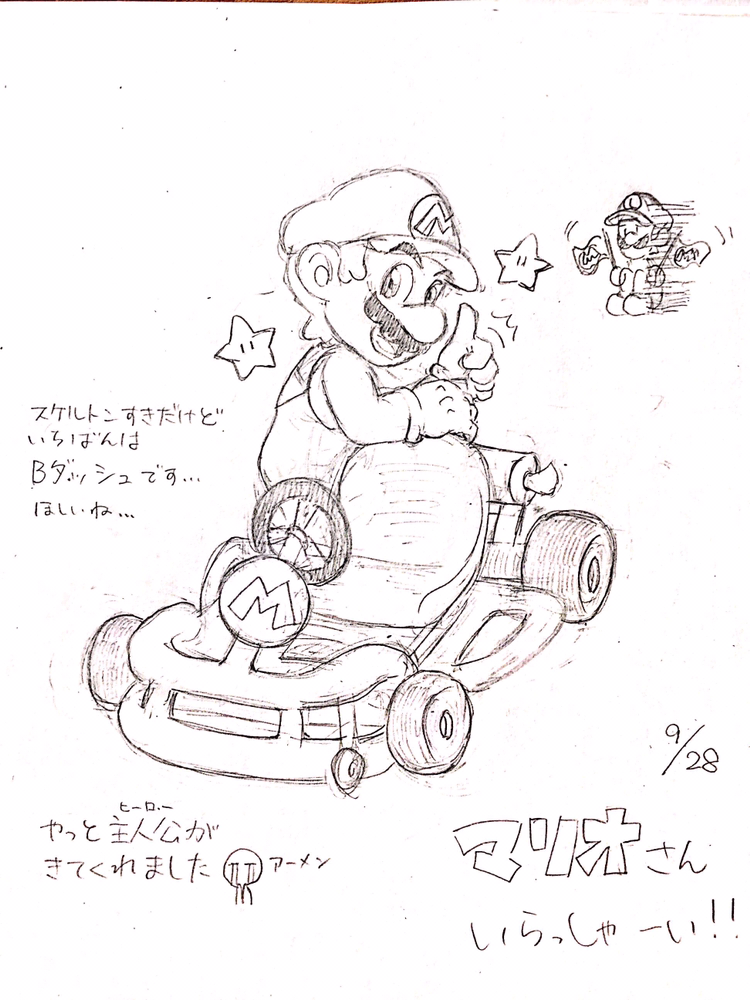 M
スケルトンすきだけど
いちばんは
Bダッシュです…
ほしいね…
M
9/28
ヒーロー
やっと主人公が
きてくれました
アーメン
マリオさん
いらっしゃーい!!